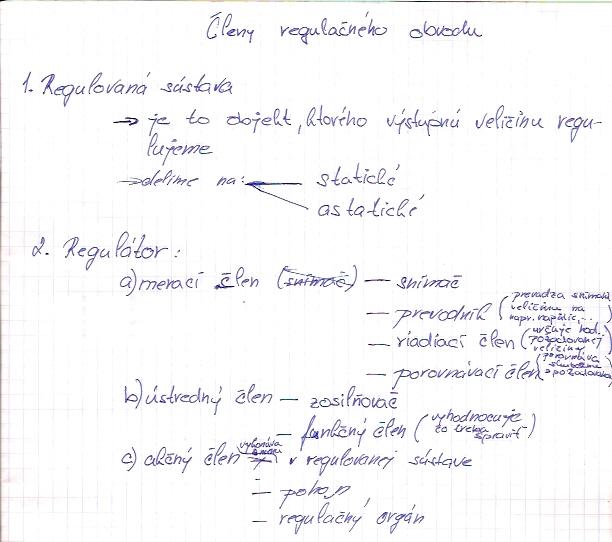 Členy regulačného obvodu
1. Regulovaná sústava
→ je to objekt, ktorého výstupnú veličinu regu-
lujeme
→ delíme na: statické
astatické
2. Regulátor:
a) merací člen (snímač) — snímač
— prevodník (prevádza snímanú
veličinu na
napr. napätie, ...
— riadiaci člen (určuje hod.
požadovanej
veličiny
— porovnávací člen (porovnáva
skutočnú
s požadovanou
b) ústredný člen — zosilňovač
— funkčný člen (vyhodnocuje
čo treba
spraviť)
c) akčný člen vykonáva v regulovanej sústave
zmenu
— pohon
— regulačný orgán